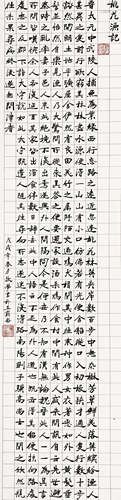 桃花源記
晉太元中武陵人捕魚為業緣溪行忘路之遠近忽逢桃花林夾岸數百步中無雜樹芳草鮮美落英繽紛漁人
甚異之復前行欲窮其林林盡水源便得一山山有小口彷彿若有光便捨船從口入初極狹纔通人復行數十步
豁然開朗土地平曠屋舍儼然有良田美池桑竹之屬阡陌交通雞犬相聞其中往來種作男女衣著悉如外人黃髮垂髫並怡然自
樂見漁人乃大驚問所從來具答之便要還家設酒殺雞作食村中聞有此人咸來問訊自云先世避秦時亂率
妻子邑人來此絕境不復出焉遂與外人間隔問今是何世乃不知有漢無論魏晉此人一一為具言所
聞皆嘆惋餘人各復延至其家皆出酒食停數日辭去此中人語云不足為外人道也既出得其船便扶向路處處誌之
及郡下詣太守說如此太守即遣人隨其往尋向所誌遂迷不復得路南陽劉子驥高尚士也聞之欣然規
往未果尋病終後遂無問津者